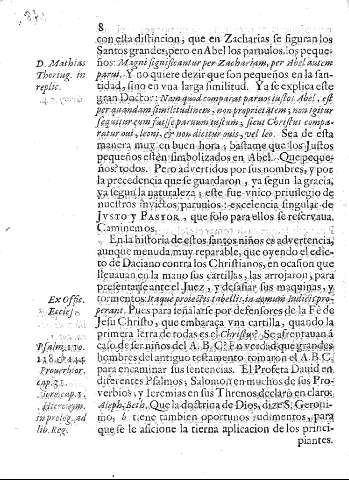 8
con esta distincion, que en Zacharias se figuran los
Santos grandes, pero en Abel los paruulos, los peque-
ños: Magni significantur per Zachariam, per Abel autem
parui. Y no quiere dezir que son pequeños en la san-
tidad, sino en vna larga similitud. Ya se explica este
gran Doctor: Non quod comparat paruos iustos Abel, est
per quandam similitudinem, non proprietatem; non igitur
sequitur eum fuisse paruum iustum; sicut Christus compa-
ratur oui, leoni, & non dicitur ouis, vel leo. Sea de esta
manera muy en buen hora, bastame que los Justos
pequeños estèn simbolizados en Abel. Que peque-
ños? todos. Pero advertidos por sus nombres, y por
la precedencia que se guardaron, ya segun la gracia,
ya segun la naturaleza, este fue vnico priuilegio de
nuestros inuictos paruulos: excelencia singular de
JVSTO y PASTOR, que solo para ellos se reseruaua.
Caminemos.
En la historia de estos santos niños es advertencia,
aunque menuda, muy reparable, que oyendo el edic-
to de Daciano contra los Christianos, en ocasion que
lleuauan en la mano sus cartillas, las arrojaron, para
presentarse ante el Juez, y desafiar sus maquinas, y
tormentos: Itaque proiectis tabellis, in domum Iudicis pro-
perant. Pues para señalarse por defensores de la Fè de
Jesu Christo, que embaraça vna cartilla, quando la
primera letra de todas es el Christus? Se afrentauan à
caso de ser niños del A. B. C? Fue verdad que grandes
hombres del antiguo testamento tomaron el A. B. C.
para encaminar sus sentencias. El Profeta Dauid en
diferentes Psalmos; Salomon en muchos de sus Pro-
verbios; y Ieremias en sus Threnos declarò en claro:
Aleph, Beth. Que la doctrina de Dios, dize S. Geroni-
mo, tiene tambien oportunos rudimentos, para
que se le aficione la tierna aplicacion de los princi-
piantes.
D. Mathias
Thoring. in
replic.
Ex Offic.
Eccles
Psalm. 110.
118. & 144
Prouerbior.
cap. 31.
cap. 1.
Hieronym.
in prolog. ad
lib. Reg.